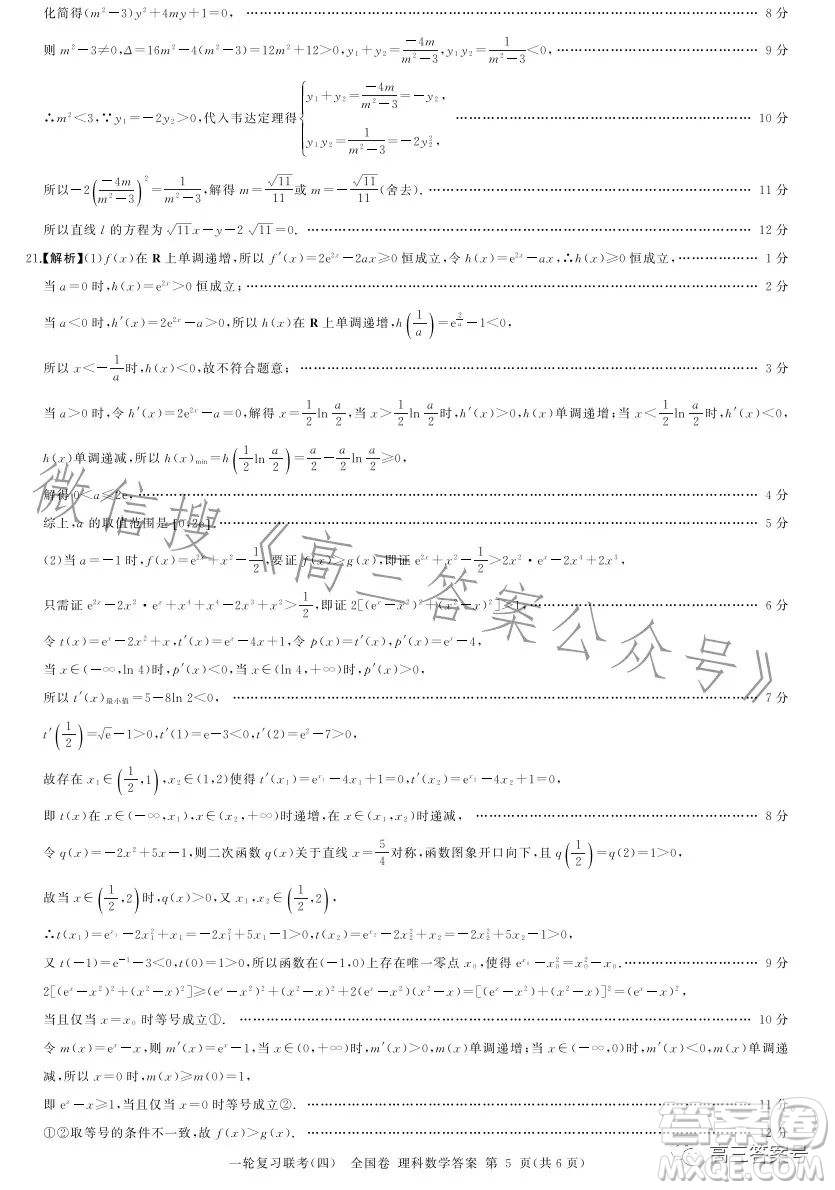 化简得(m²-3)y²+4my+1=0, ………… 8分
则 m²-3≠0,Δ=16m²-4(m²-3)=12m²+12>0,y₁+y₂=\frac{-4m}{m²-3},y₁y₂=\frac{1}{m²-3}<0, ………… 9分
∴m²<3,∵y₁=-2y₂>0,代入韦达定理得{y₁+y₂=\frac{-4m}{m²-3}=-y₂, y₁y₂=\frac{1}{m²-3}=-2y₂², ………… 10分
所以-2(\frac{-4m}{m²-3})²=\frac{1}{m²-3},解得 m=\frac{√11}{11}或 m=-\frac{√11}{11}(舍去). ………… 11分
所以直线 l 的方程为√11x-y-2√11=0. ………… 12分
21.【解析】(1)f(x)在 R 上单调递增,所以 f′(x)=2e^{2x}-2ax≥0 恒成立,令 h(x)=e^{2x}-ax,∴h(x)≥0 恒成立, ………… 1分
当 a=0 时,h(x)=e^{2x}>0 恒成立; ………… 2分
当 a<0 时,h′(x)=2e^{2x}-a>0,所以 h(x)在 R 上单调递增,h(\frac{1}{a})=e^{\frac{2}{a}}-1<0,
所以 x<-\frac{1}{a}时,h(x)<0,故不符合题意; ………… 3分
当 a>0 时,令 h′(x)=2e^{2x}-a=0,解得 x=\frac{1}{2}ln\frac{a}{2},当 x>\frac{1}{2}ln\frac{a}{2}时,h′(x)>0,h(x)单调递增;当 x<\frac{1}{2}ln\frac{a}{2}时,h′(x)<0,
h(x)单调递减,所以 h(x)_{min}=h(\frac{1}{2}ln\frac{a}{2})=\frac{a}{2}-\frac{a}{2}ln\frac{a}{2}≥0,
解得 0<a≤2e. ………… 4分
综上,a 的取值范围是[0,2e]. ………… 5分
(2)当 a=-1 时,f(x)=e^{2x}+x²-\frac{1}{2},要证 f(x)>g(x),即证 e^{2x}+x²-\frac{1}{2}>2x²·e^x-2x⁴+2x³,
只需证 e^{2x}-2x²·e^x+x⁴+x⁴-2x³+x²>\frac{1}{2},即证 2[(e^x-x²)²+(x²-x)²]>1, ………… 6分
令 t(x)=e^x-2x²+x,t′(x)=e^x-4x+1,令 p(x)=t′(x),p′(x)=e^x-4,
当 x∈(-∞,ln 4)时,p′(x)<0,当 x∈(ln 4,+∞)时,p′(x)>0,
所以 t′(x)_{最小值}=5-8ln 2<0, ………… 7分
t′(\frac{1}{2})=√e-1>0,t′(1)=e-3<0,t′(2)=e²-7>0,
故存在 x₁∈(\frac{1}{2},1),x₂∈(1,2)使得 t′(x₁)=e^{x₁}-4x₁+1=0,t′(x₂)=e^{x₂}-4x₂+1=0.
即 t(x)在 x∈(-∞,x₁),x∈(x₂,+∞)时递增,在 x∈(x₁,x₂)时递减, ………… 8分
令 q(x)=-2x²+5x-1,则二次函数 q(x)关于直线 x=\frac{5}{4}对称,函数图象开口向下,且 q(\frac{1}{2})=q(2)=1>0,
故当 x∈(\frac{1}{2},2)时,q(x)>0,又 x₁,x₂∈(\frac{1}{2},2),
∴t(x₁)=e^{x₁}-2x₁²+x₁=-2x₁²+5x₁-1>0,t(x₂)=e^{x₂}-2x₂²+x₂=-2x₂²+5x₂-1>0,
又 t(-1)=e^{-1}-3<0,t(0)=1>0,所以函数在(-1,0)上存在唯一零点 x₀,使得 e^{x₀}-x₀²=x₀²-x₀. ………… 9分
2[(e^x-x²)²+(x²-x)²]≥(e^x-x²)²+(x²-x)²+2(e^x-x²)(x²-x)=[(e^x-x²)+(x²-x)]²=(e^x-x)²,
当且仅当 x=x₀ 时等号成立①. ………… 10分
令 m(x)=e^x-x,则 m′(x)=e^x-1,当 x∈(0,+∞)时,m′(x)>0,m(x)单调递增;当 x∈(-∞,0)时,m′(x)<0,m(x)单调递
减,所以 x=0 时,m(x)≥m(0)=1,
即 e^x-x≥1,当且仅当 x=0 时等号成立②. ………… 11分
①②取等号的条件不一致,故 f(x)>g(x). ………… 12分
一轮复习联考(四) 全国卷 理科数学答案 第 5 页(共 6 页)
微信搜《高三答案公众号》
答案圈
MXQE.COM
高三答案号